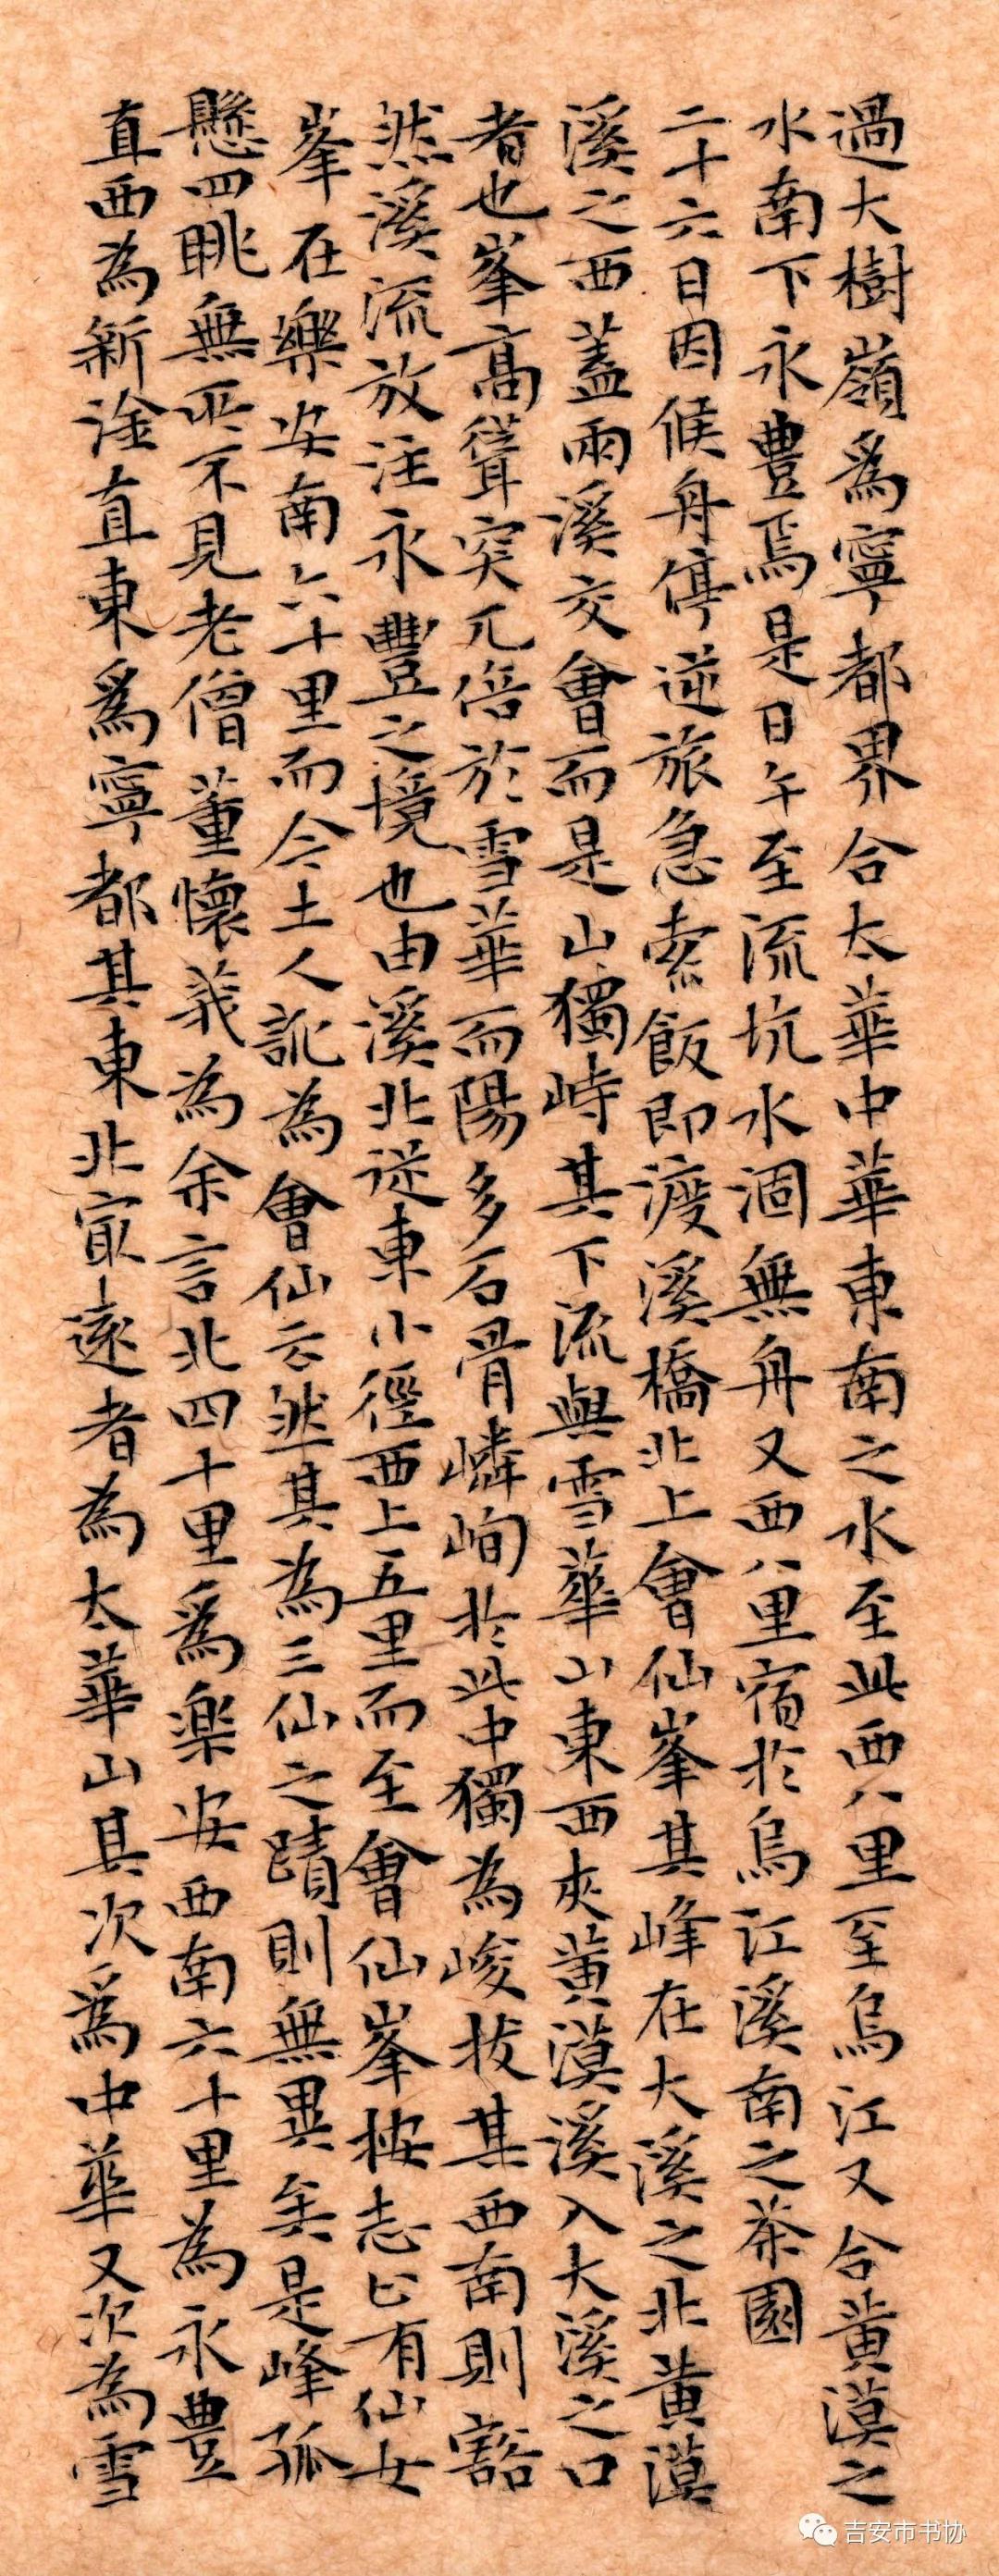 過大樹嶺爲寧都界合太華中華東南之水至此西八里至烏江又合黄漠之
水南下永豊焉是日午至流坑水涸無舟又西八里宿於烏江溪南之茶園
二十六日因候舟停逆旅急索飯即渡溪橋北上會仙峯其峰在大溪之北黄漠
溪之西蓋兩溪交會而是山獨峙其下流與雪華山東西夾黄漠溪入大溪之口
者也峯高聳突兀倍於雪華而陽多石骨嶙峋於此中獨為峻拔其西南則豁
然溪流放注永豐之境也由溪北從東小徑西上五里而至會仙峯按志止有仙女
峯在樂安南六十里而今土人訛為會仙云然其為三仙之蹟則無異矣是峰孤
懸四眺無所不見老僧董懷莪為余言北四十里爲樂安西南六十里為永豊
直西為新淦直東爲寧都其東北寂遠者為太華山其次爲中華又次為雪
吉安市书协